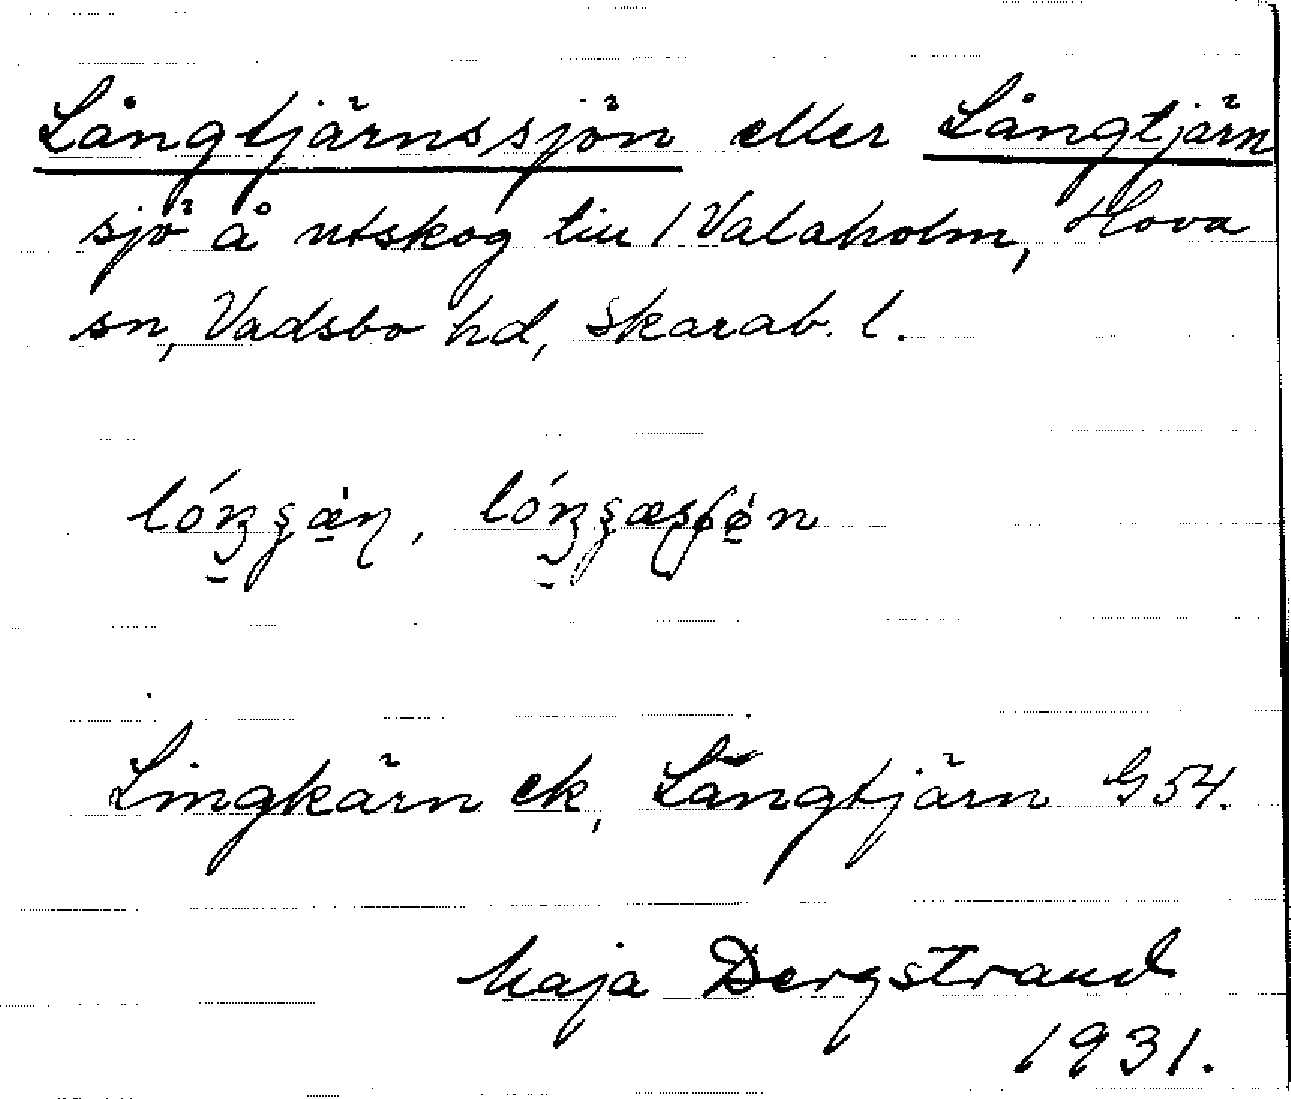 Långtjärnssjön eller Långtjärn
sjö å utskog till / Valaholm, Hova
sn, Vadsbo hd, Skarab. l.
Lingkärn ek, Långtjärn G 54.
Maja Bergstrand
1931.